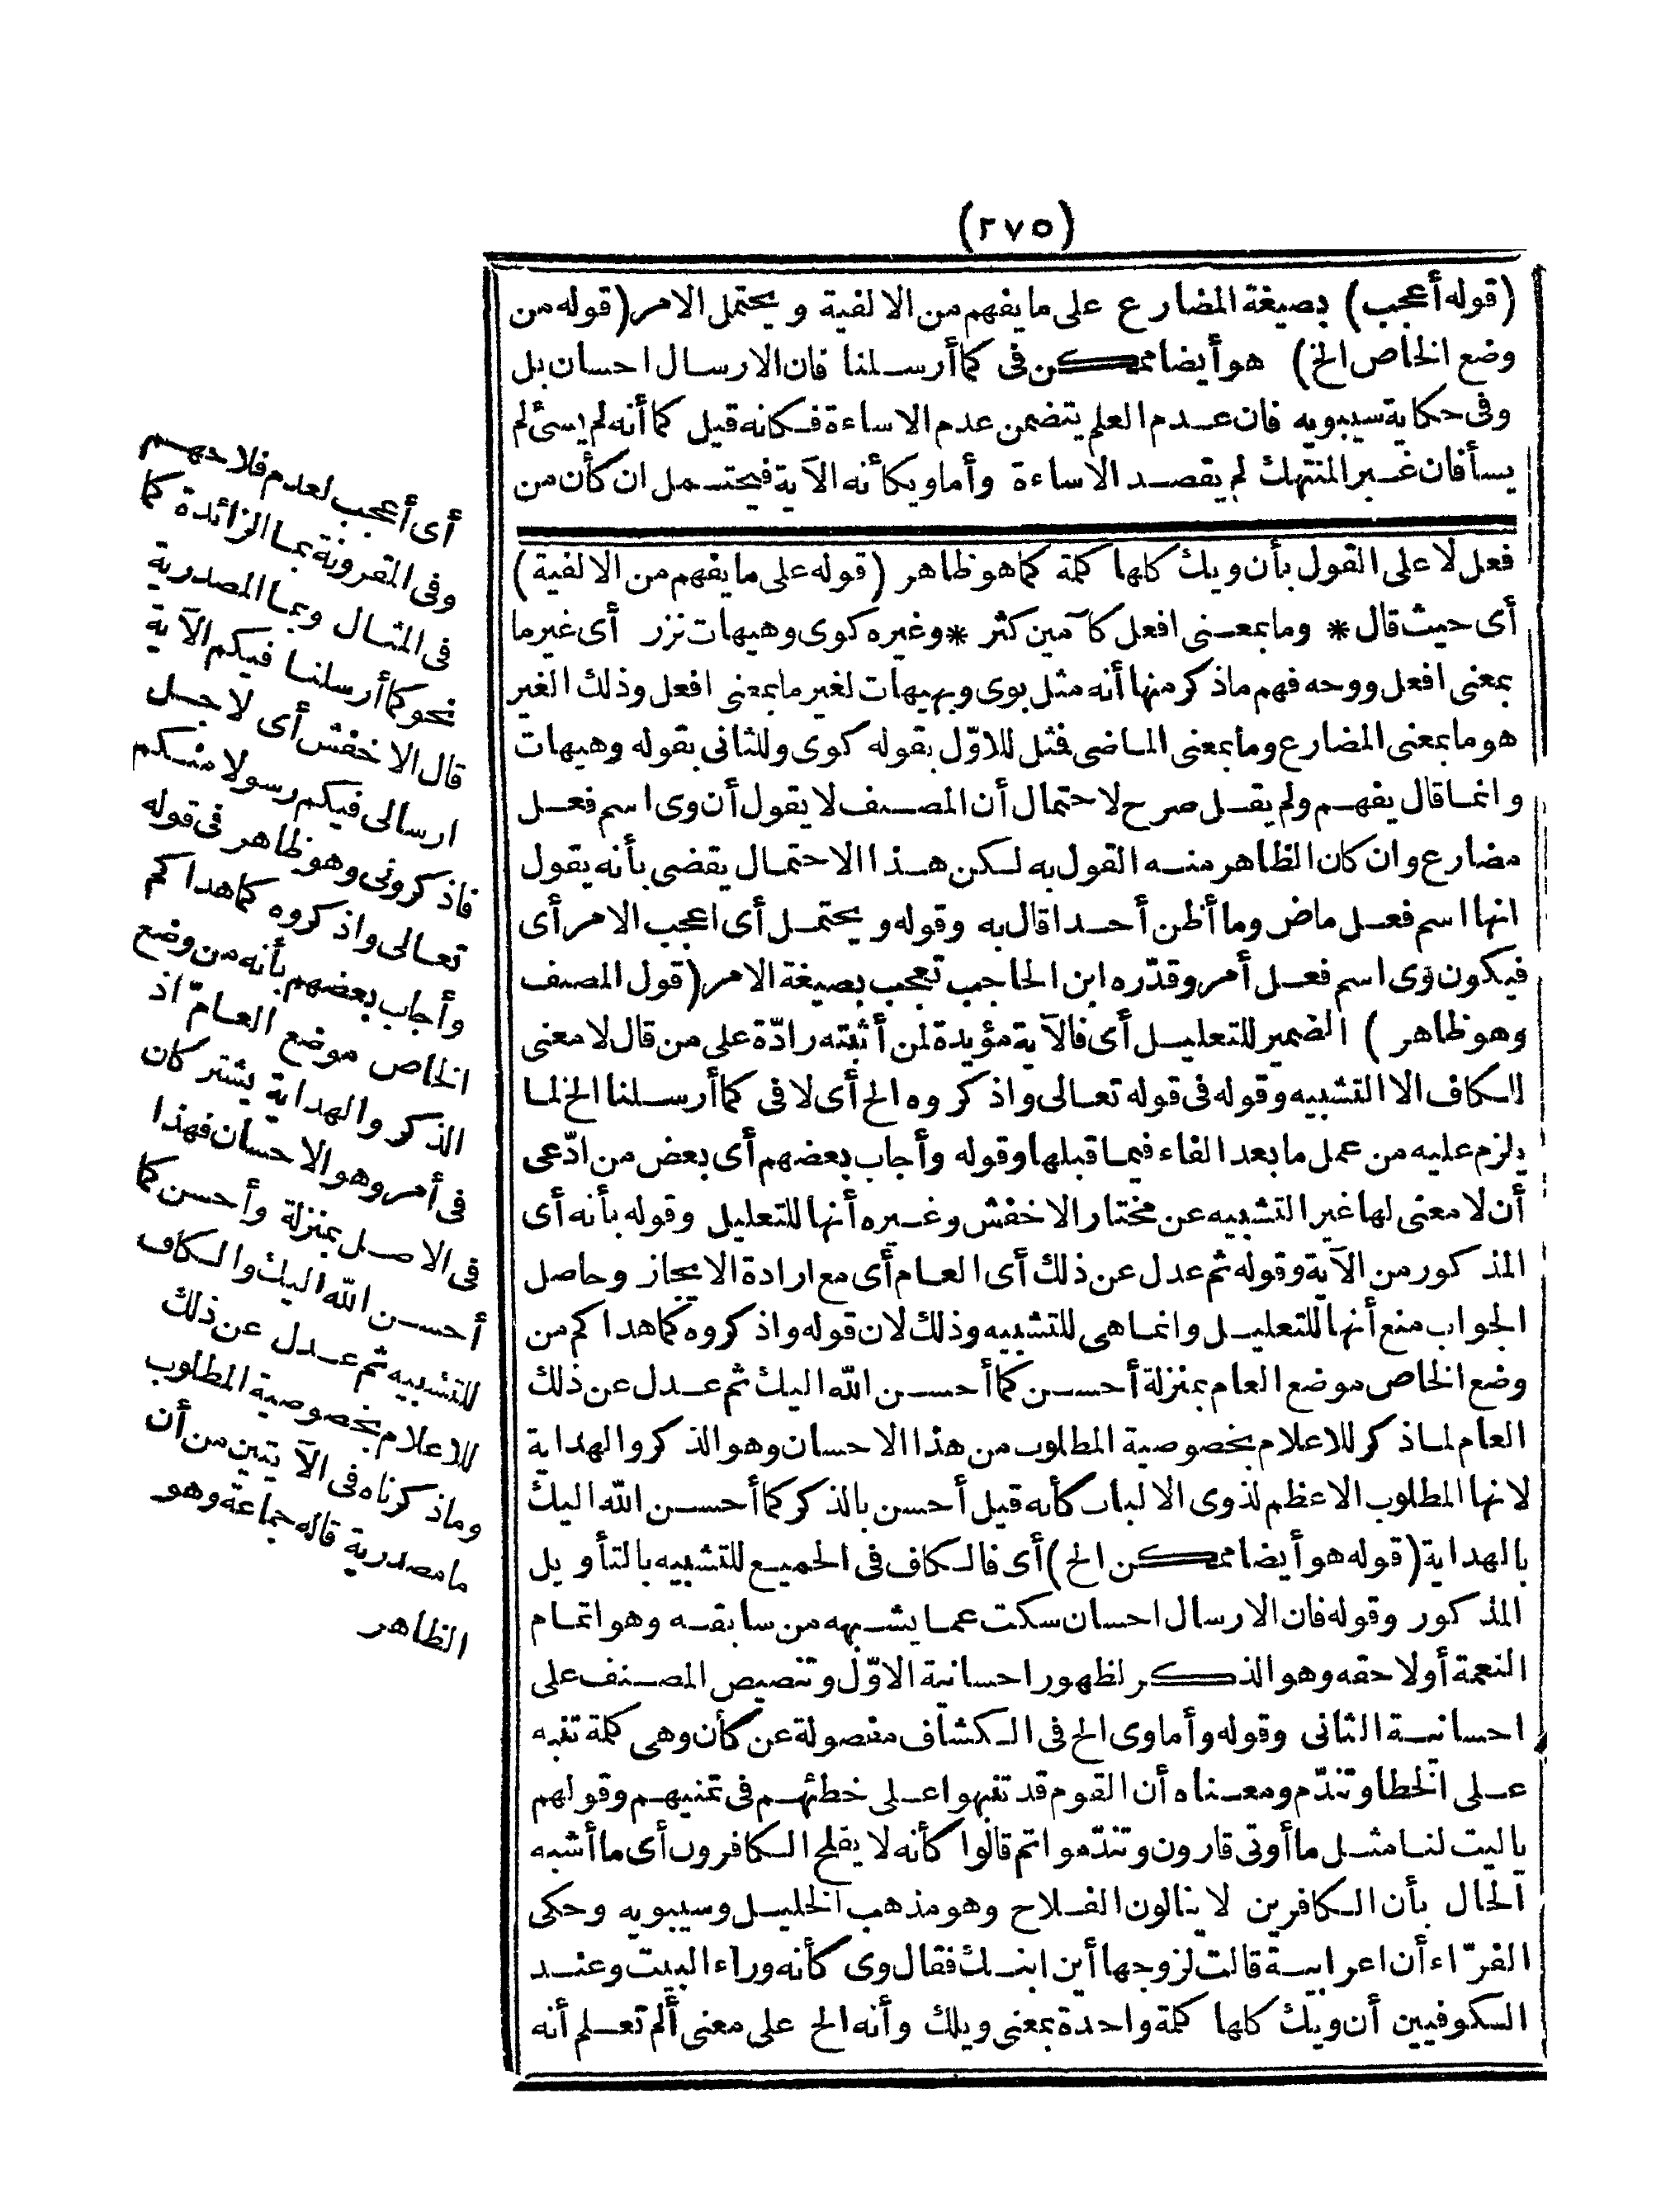 (٢٧٥)
(قوله أعجب) بصيغة المضارع على ما يفهم من الالفية ويحتمل الامر (قوله من
وضع الخاص الخ) هو أيضا ممكن فى كما أرسلنا فان الارسال احسان بل
وفى حكاية سيبويه فان عدم العلم يتضمن عدم الاساءة فكانه قيل كما أنه لم يسئ لم
يسأ فان غير المنتهك لم يقصد الاساءة وأما ويكأنه الآية فيحتمل ان كأن من
فعل لا على القول بأن ويك كلها كلمة كما هو ظاهر (قوله على ما يفهم من الالفية)
أى حيث قال * وما بمعنى افعل كآمين كثر * وغيره كوى وهيهات نزر أى غير ما
بمعنى افعل ووجه فهم ما ذكر منها أنه مثل بوى وبهيهات لغير ما بمعنى افعل وذلك الغير
هو ما بمعنى المضارع وما بمعنى الماضى فمثل للاوّل بقوله كوى وللثانى بقوله وهيهات
وانما قال يفهم ولم يقل صرح لاحتمال أن المصنف لا يقول أن وى اسم فعل
مضارع وان كان الظاهر منه القول به لكن هذا الاحتمال يقضى بأنه يقول
انها اسم فعل ماض وما أظن أحدا قال به وقوله ويحتمل أى اعجب الامر أى
فيكون وى اسم فعل أمر وقدّره ابن الحاجب تعجب بصيغة الامر (قول المصنف
وهو ظاهر) الضمير للتعليل أى فالآية مؤيدة لمن أثبته رادّة على من قال لا معنى
للكاف الا التشبيه وقوله فى قوله تعالى واذكروه الخ أى لا فى كما أرسلنا الخ لما
يلزم عليه من عمل ما بعد الفاء فيما قبلها وقوله وأجاب بعضهم أى بعض من ادّعى
أن لا معنى لها غير التشبيه عن مختار الاخفش وغيره أنها للتعليل وقوله بأنه أى
المذكور من الآية وقوله ثم عدل عن ذلك أى العام أى مع ارادة الايجاز وحاصل
الجواب منع أنها للتعليل وانما هى للتشبيه وذلك لان قوله واذكروه كما هداكم من
وضع الخاص موضع العام بمنزلة أحسن كما أحسن الله اليك ثم عدل عن ذلك
العام لما ذكر للاعلام بخصوصية المطلوب من هذا الاحسان وهو الذكر والهداية
لانها المطلوب الاعظم لذوى الالباب كأنه قيل أحسن بالذكر كما أحسن الله اليك
بالهداية (قوله هو أيضا ممكن الخ) أى فالكاف فى الجميع للتشبيه بالتأويل
المذكور وقوله فان الارسال احسان سكت عما يشبهه من سابقه وهو اتمام
النعمة أو لاحقه وهو الذكر لظهور احسانية الاوّل وتنصيص المصنف على
احسانية الثانى وقوله وأما وى الخ فى الكشاف مفصولة عن كأن وهى كلمة تنبه
على الخطا وتندّم ومعناه أن القوم قد تنبهوا على خطئهم فى تمنيهم وقولهم
ياليت لنا مثل ما أوتى قارون وتندّموا ثم قالوا كأنه لا يفلح الكافرون أى ما أشبه
الحال بأن الكافرين لا ينالون الفلاح وهو مذهب الخليل وسيبويه وحكى
الفرّاء أن اعرابية قالت لزوجها أين ابنك فقال وى كأنه وراء البيت وعند
الكوفيين أن ويك كلها كلمة واحدة بمعنى ويلك وأنه الخ على معنى ألم تعلم أنه
أى أعجب لعدم فلاحهم
وفى المقرونة بما الزائدة كما
فى المثال وبما المصدرية
نحو كما أرسلنا فيكم الآية
قال الاخفش أى لاجل
ارسالى فيكم رسولا منكم
فاذكرونى وهو ظاهر فى قوله
تعالى واذكروه كما هداكم
وأجاب بعضهم بأنه من وضع
الخاص موضع العامّ اذ
الذكر والهداية يشتركان
فى أمر وهو الاحسان فهذا
فى الاصل بمنزلة وأحسن كما
أحسن الله اليك والكاف
للتشبيه ثم عدل عن ذلك
للاعلام بخصوصية المطلوب
وما ذكرناه فى الآيتين من أن
ما مصدرية قاله جماعة وهو
الظاهر